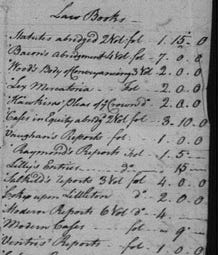 Law Books
Statutes abridged 2 Vol fol - 1.15-0
Bacon's abridgment 4 Vol - 7.0.0
Wood's Body of Conveyancing 3 Vol 2.0.0
Lex Mercatoria fol - 2.0.0
Hawkins's Pleas of Crown do 2.0.0
Cases in Equity abridg'd 2 Vol - 3.10.0
Vaughan's Reports fol - 1.0.0
Raymond's Reports fol - 1.5-
Lilly's Entries - do - 15-
Salkeld's reports 3 Vol fol 4.0.0
Coke upon Littleton do - 2.0.0
Modern Reports 6 Vol do - 4
Modern Cases - fol - 9
Ventris' Reports fol - 1.0.0